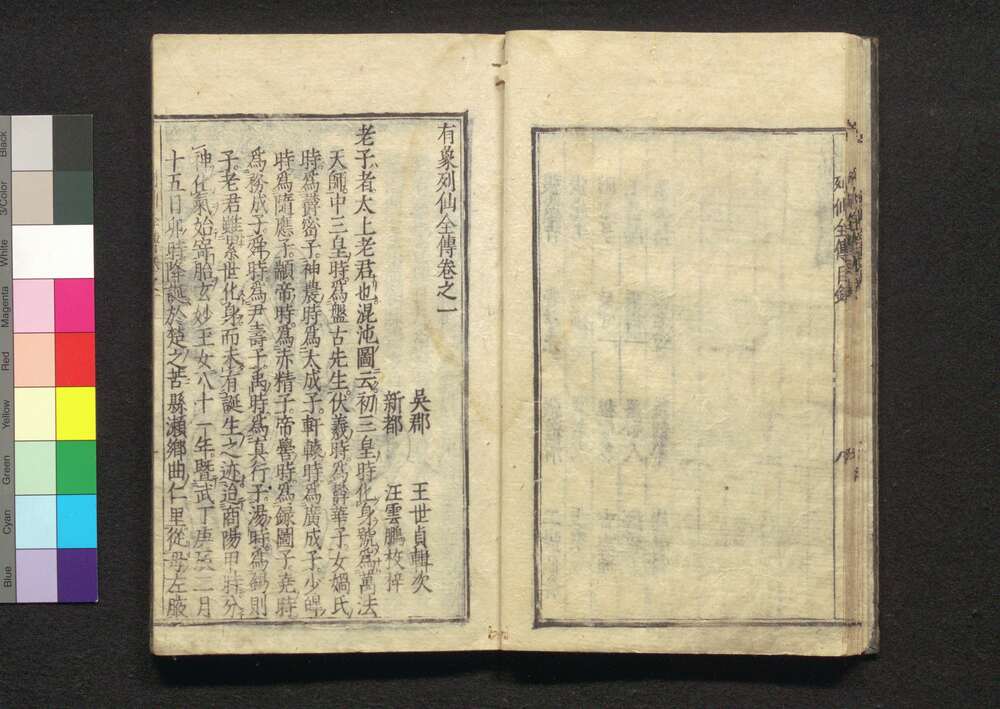 列仙全傳目錄
有象列仙全傳卷之一
吳郡 王世貞輯次
新都 汪雲鵬校梓
老子者太上老君也混沌圖云初三皇時化身號為萬法
天師中三皇時為盤古先生伏羲時為鬱華子女媧氏
時為鬱密子神農時為太成子軒轅時為廣成子少皥
時為隨應子顓帝時為赤精子帝嚳時為錄圖子堯時
為務成子舜時為尹壽子禹時為真行子湯時為錫則
子老君雖累世化身而未有誕生之迹迨商陽甲時分
神化氣始寄胎玄妙王女八十一年暨武丁庚辰二月
十五日卯時降誕於楚之苦縣瀨鄉曲仁里從母左腋
Black
3/Color
White
Magenta
Red
Yellow
Green
Cyan
Blue